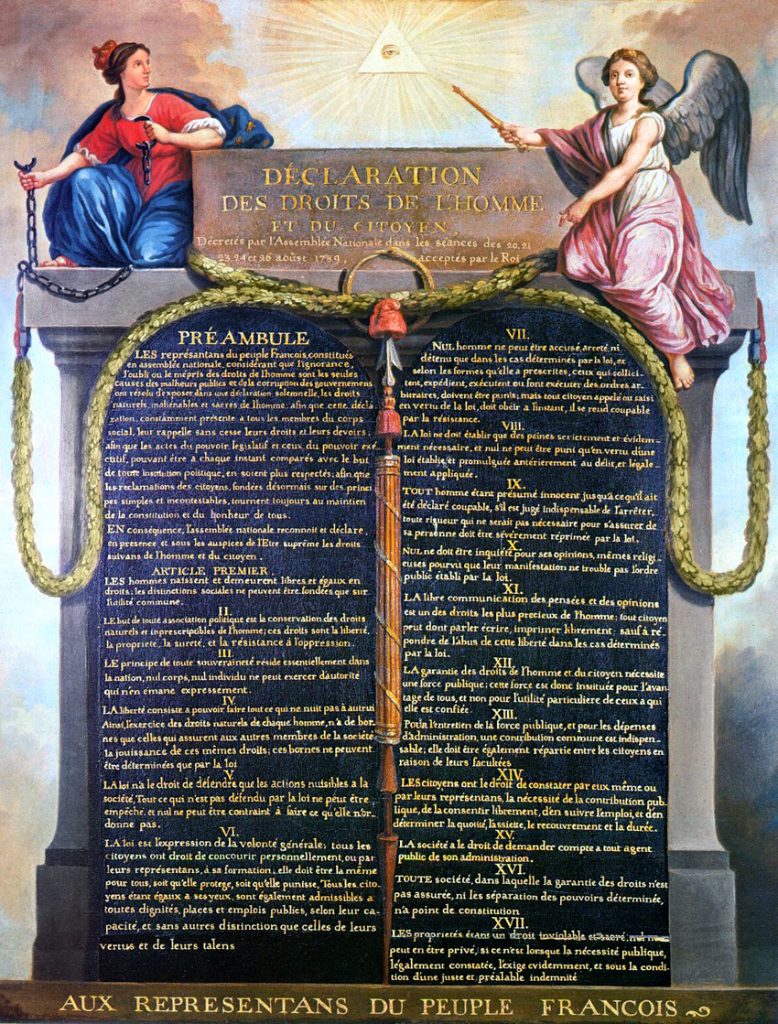 DÉCLARATION
DES DROITS DE L'HOMME
ET DU CITOYEN,
Décretés par l'Assemblée Nationale dans les séances des 20. 21
23. 24 et 26 aoûst 1789, acceptés par le Roi
PRÉAMBULE
LES représantans du peuple Francois, constitués
en assemblée nationale, considérant que l'ignorance,
l'oubli ou le mépris des droits de l'homme sont les seules
causes des malheurs publics et de la corruption des gouvernemens
ont résolu d'exposer dans une déclaration solemnelle, les droits
naturels, inaliénables et sacrés de l'homme; afin que cette décla
ration, constamment présente a tous les membres du corps
social, leur rappelle sans cesse leurs droits et leurs devoirs;
afin que les actes du pouvoir législatif et ceux du pouvoir exé
cutif, pouvant être a chaque instant comparés avec le but
de toute institution politique, en soient plus respectés; afin que
les reclamations des citoyens, fondées désormais sur des princi
pes simples et incontestables, tournent toujours au maintien
de la constitution et du bonheur de tous.
EN conséquence, l'assemblée nationale reconnoit et déclare,
en presence et sous les auspices de l'Etre suprême les droits
suivans de l'homme et du citoyen.
ARTICLE PREMIER.
LES hommes naissent et demeurent libres et égaux en
droits. les distinctions sociales ne peuvent être fondées que sur
l'utilité commune.
II.
LE but de toute association politique est la conservation des droits
naturels et inprescriptibles de l'homme; ces droits sont la liberté,
la propriete, la sureté, et la résistance à l'oppression.
III.
LE principe de toute souveraineté réside essentiellement dans
la nation, nul corps, nul individu ne peut exercer d'autorité
qui n'en émane expressement.
IV.
LA liberté consiste a pouvoir faire tout ce qui ne nuit pas à autrui
Ainsi, l'exercice des droits naturels de chaque homme, n'a de bor-
nes que celles qui assurent aux autres membres de la société
la jouissance de ces mêmes droits; ces bornes ne peuvent
être déterminées que par la loi
V.
LA loi n'a le droit de défendre que les actions nuisibles a la
société, Tout ce qui n'est pas défendu par la loi ne peut être
empêché, et nul ne peut être contraint à faire ce qu'elle n'or-
donne pas.
VI.
LA loi est l'expression de la volonté générale; tous les
citoyens ont droit de concourir personnellement, ou par
leurs représentans, à sa formation; elle doit être la même
pour tous, soit qu'elle protege, soit qu'elle punisse, Tous les cito-
yens étant égaux a ses yeux, sont également admissibles a
toutes dignités, places et emplois publics, selon leur ca-
pacité, et sans autres distinction que celles de leurs
vertus et de leurs talens
VII.
NUL homme ne peut être accusé, arreté ni
détenu que dans les cas déterminés par la loi, et
selon les formes qu'elle a prescrites, ceux qui sollici-
tent, expédient, exécutent ou font exécuter des ordres ar-
bitraires, doivent être punis; mais tout citoyen appelé ou saisi
en vertu de la loi, doit obéir a l'instant, il se rend coupable
par la résistance.
VIII.
LA loi ne doit établir que des peines strictement et évidem-
ment nécessaire, et nul ne peut être puni qu'en vertu d'une
loi établie et promulguée antérierement au délit, et légale-
ment appliquée.
IX.
TOUT homme étant présumé innocent jusqu'a ce qu'il ait
été déclaré coupable, s'il est jugé indispensable de l'arrêter,
toute rigueur qui ne serait pas nécessaire pour s'assurer de
sa personne doit être sévèrement réprimée par la loi.
X.
NUL ne doit être inquiété pour ses opinions, mêmes religi-
euses pourvu que leur manifestation ne trouble pas l'ordre
public établi par la loi.
XI.
LA libre communication des pensées et des opinions
est un des droits les plus precieux de l'homme; tout citoyen
peut dont parler écrire, imprimer librement; sauf à ré-
pondre de l'abus de cette liberté dans les cas déterminés
par la loi.
XII.
LA garantie des droits de l'homme et du citoyen nécessite
une force publique; cette force est donc instituée pour l'avan-
tage de tous, et non pour l'utilité particuliere de ceux a qui
elle est confiée.
XIII.
Pour l'entretien de la force publique, et pour les dépenses
d'administration, une contribution commune est indispen-
sable; elle doit être également répartie entre les citoyens en
raison de leurs facultées
XIV.
LES citoyens ont le droit de constater par eux même ou
par leurs représentans, la nécessité de la contribution pub-
lique, de la consentir librement, d'en suivre l'emploi, et d'en
déterminer la quotité, l'assiette, le recouvrement et la durée.
XV.
LA société a le droit de demander compte a tout agent
public de son administration.
XVI.
TOUTE société, dans laquelle la garantie des droits n'est
pas assurée, ni les séparation des pouvoirs déterminée,
n'a point de constitution
XVII.
LES proprietés étant un droit inviolable et sacré, nul ne
peut en être privé, si ce n'est lorsque la nécessité publique,
légalement constatée, l'exige evidemment, et sous la condi-
tion d'une juste et préalable indemnité
AUX REPRESENTANS DU PEUPLE FRANCOIS